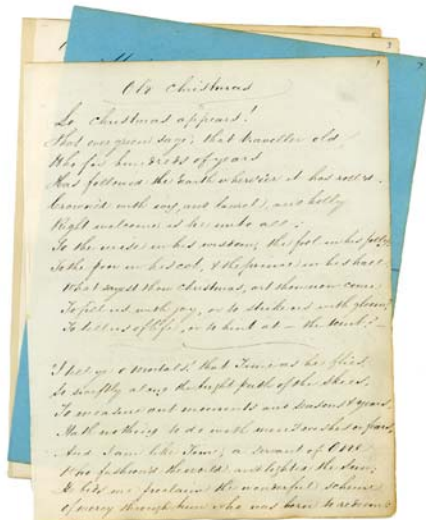 Old Christmas
Lo Christmas appears!
That evergreen sage, that traveller old,
Who for hundreds of years
Has followed the Earth wheresoe'er it has rolled.
Crown'd with ivy, and laurel, and holly
Right welcome is he unto all;
To the wise in his wisdom, the fool in his folly
To the poor in his cot, & the prince in his hall.
What sayst thou Christmas, art thou now come
To fill us with joy, or to strike us with gloom?
To tell us of life, or to hint at – the tomb? –
I tell ye o Mortals! that Time as he flies
So swiftly along the bright path of the skies,
To measure out moments and seasons & years,
Hath nothing to do with your wishes or fears,
And I am like Time, a servant of One
Who fashion'd the world and lighted the Sun;
He bids me proclaim the wonderful scheme
Of mercy through him who was born to redeem